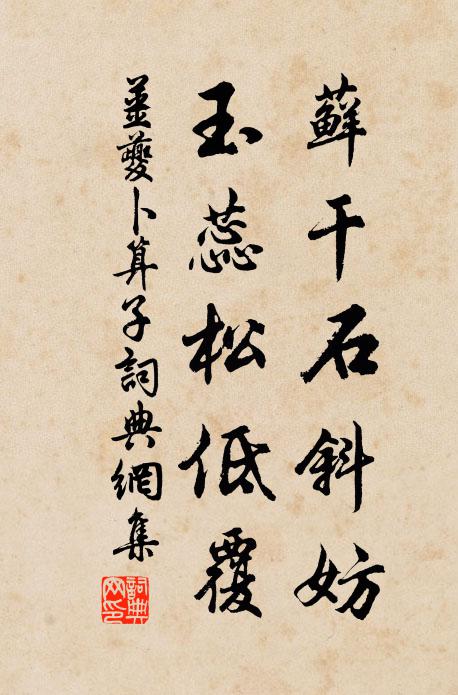 蘚干石斜妨
玉蕊松低覆
姜夔卜算子詞典網集
詞典網印